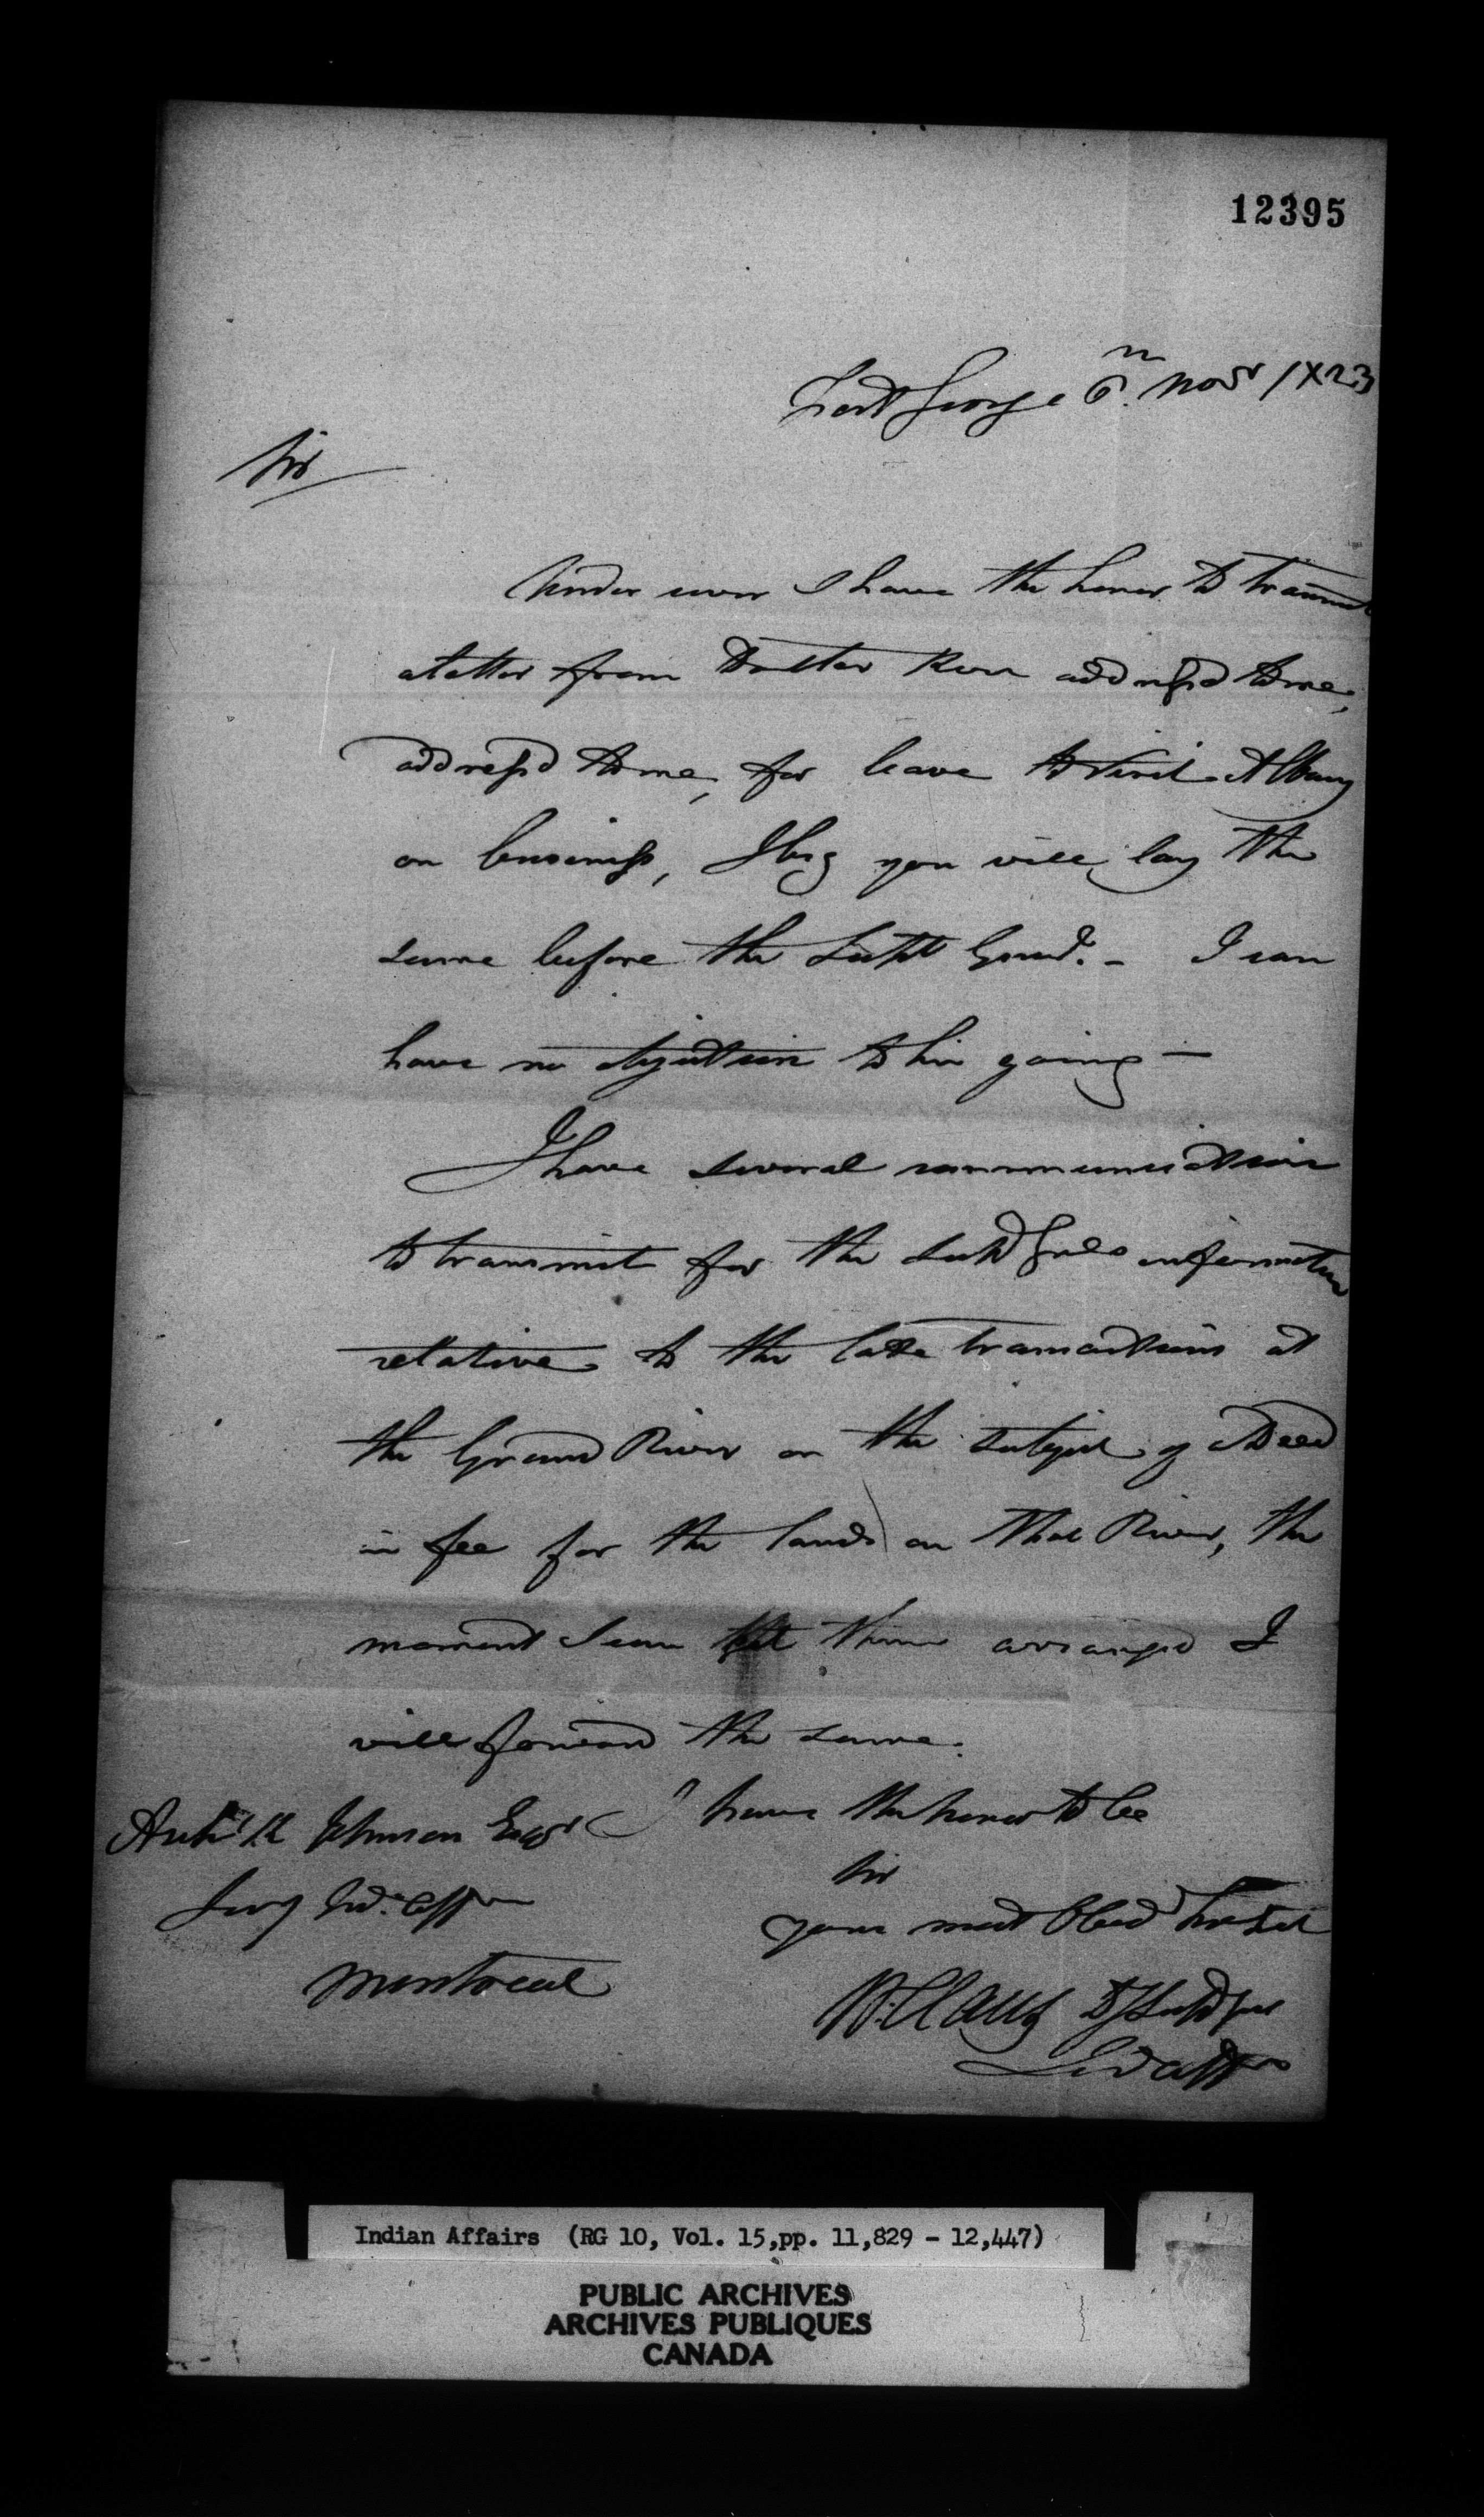 12395
Fort George 6th Novr 1823
Sir
Under cover I have the honor to transmit
a letter from Doctor Kerr address'd to me,
address'd to me, for leave to visit Albany
on business, I beg you will lay the
same before the Supt Genl. - I can
have no objection to his going -
I have several communications
to transmit for the Supt Genls information
relative to the late transactions at
the Grand River on the subject of a Deed
in fee for the lands on that River, the
moment I can get them arranged I
will forward the same.
I have the honor to be
Sir
your most Obed
W. Claus Dy Supt Genl
Ind Affrs
Johnson Esqr
Secy Ind. Affrs
Montreal
Indian Affairs (RG 10, Vol. 15,pp. 11,829 - 12,447)
PUBLIC ARCHIVES
ARCHIVES PUBLIQUES
CANADA